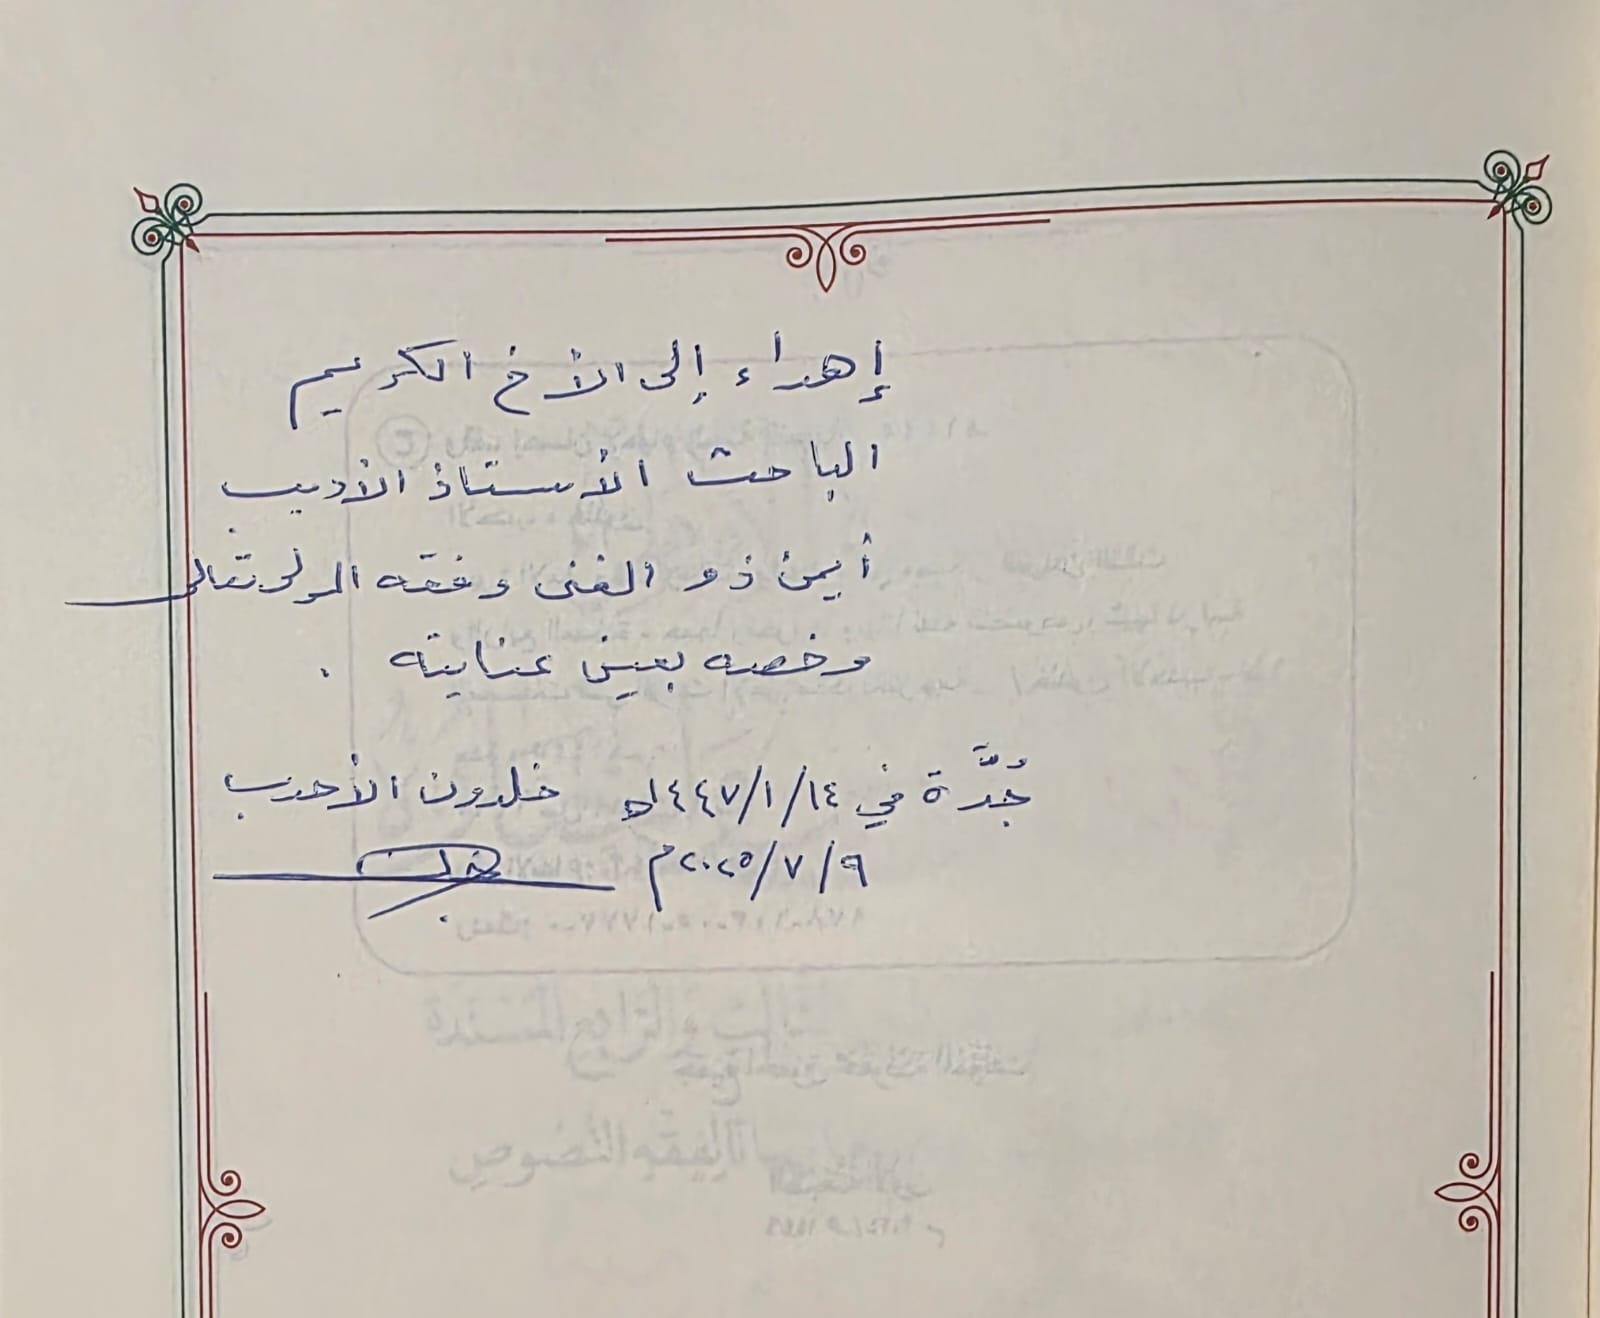 إهداء إلى الأخ الكريم
الباحث الأستاذ الأديب
أيمن ذو الغنى وفقه المولى تعالى
وخصه بعين عنايته .
جُدَّة في ١٤/١/١٤٤٧هـ خلدون الأحدب
٩/٧/٢٠٢٥م